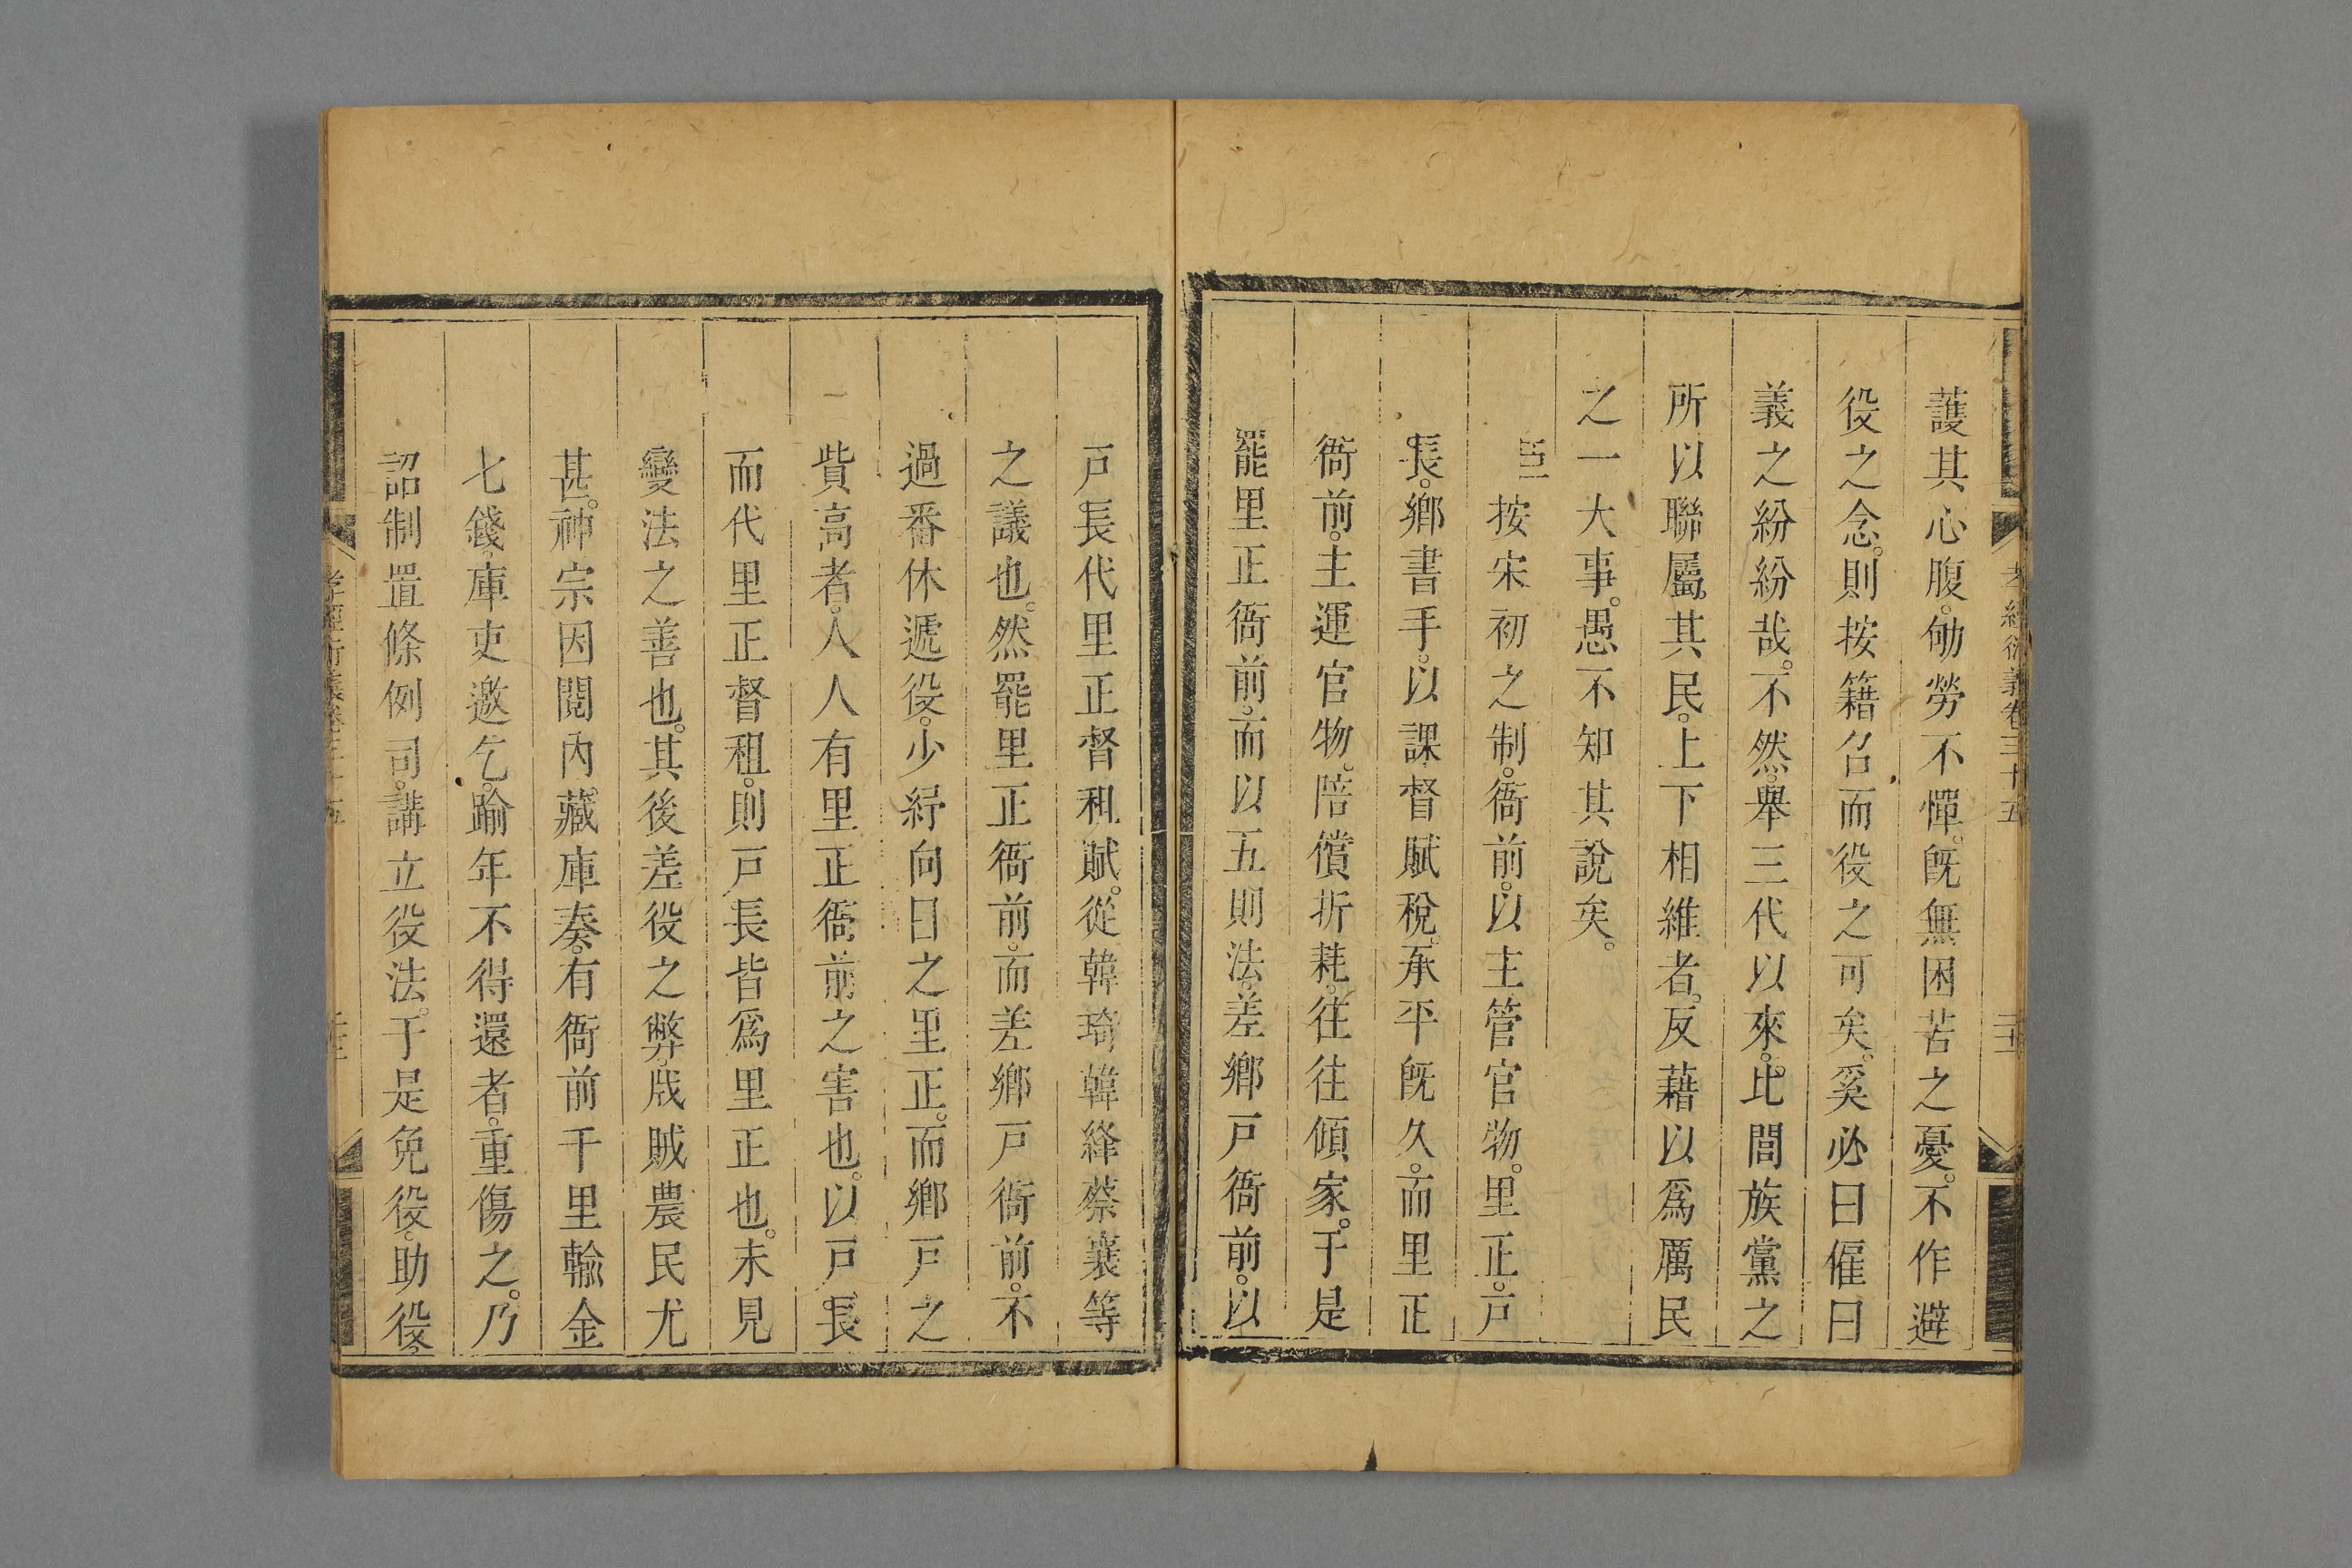 孝經衍義卷三十五
護其心腹。劬勞不憚。旣無困苦之憂。不作避
役之念。則按籍召而役之可矣。奚必曰僱曰
義之紛紛哉。不然。舉三代以來。比閭族黨之
所以聯屬其民。上下相維者。反藉以爲厲民
之一大事。愚不知其說矣。
臣按宋初之制。衙前。以主管官物。里正。戸
長。鄉書手。以課督賦稅。承平旣久。而里正
衙前。主運官物。陪償折耗。往往傾家。于是
罷里正衙前。而以五則法。差鄉戸衙前。以
戸長代里正督租賦。從韓琦韓絳蔡襄等
之議也。然罷里正衙前。而差鄉戸衙前。不
過番休遞役。少紓向日之里正。而鄉戸之
貲高者。人人有里正衙前之害也。以戸長
而代里正督租。則戸長皆爲里正也。未見
變法之善也。其後差役之弊。戕賊農民尤
甚。神宗因閱內。藏庫奏。有衙前千里輸金
七錢。庫吏邀乞。踰年不得還者。重傷之。乃
詔制置條例司。講立役法。于是免役。助役。
孝經衍義卷三十五